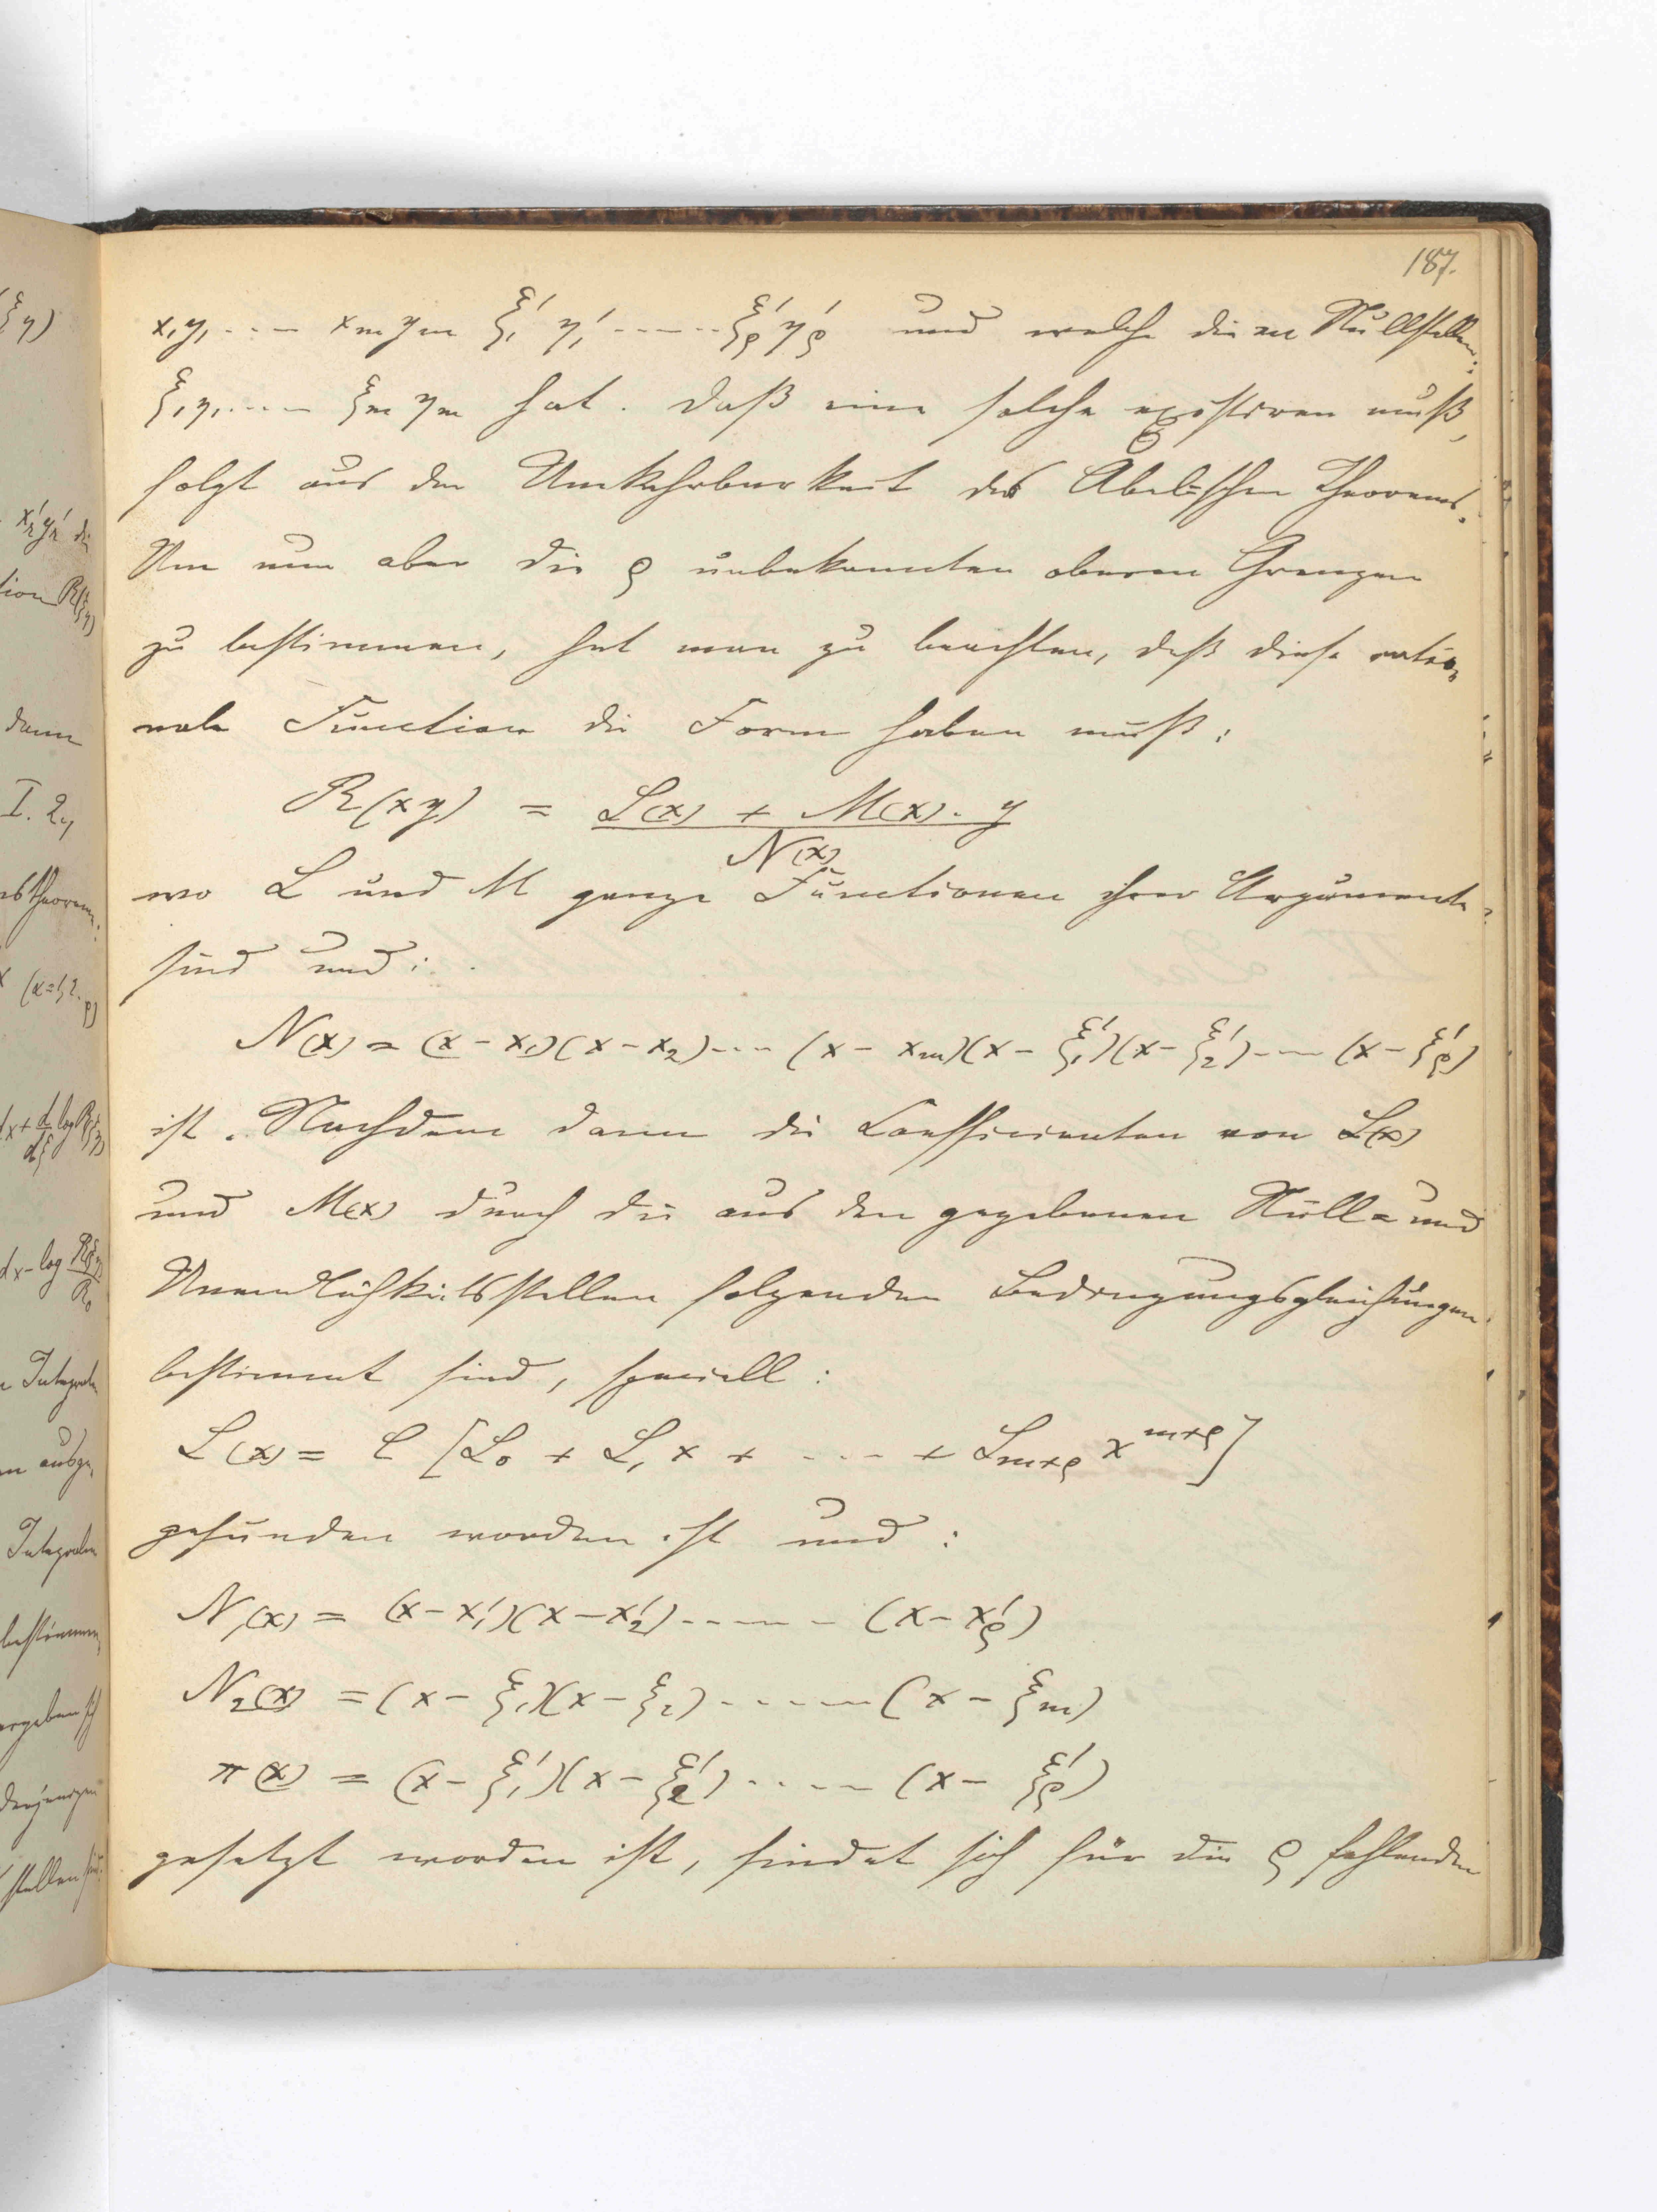 187.
x₁y₁ ---- xₘyₘ ξ₁′ η₁′ ------ ξ′ρ η′ρ und welche die m Nullstellen:
ξ₁η₁ ---- ξₘ ηₘ hat. Daß eine solche existiren muß,
folgt aus der Umkehrbarkeit des Abelschen Theorems.
Um nun aber die ρ unbekannten oberen Grenzen
zu bestimmen, hat man zu beachten, daß diese ratio-
nale Function die Form haben muß:
R(xy) = L(x) + M(x). y
N(x)
wo L und M ganze Functionen ihrer Argumente
sind und:
N(x) = (x - x₁)(x - x₂) --- (x - xₘ)(x - ξ₁′)(x - ξ₂′) --- (x - ξ′ρ)
ist. Nachdem dann die Coefficienten von L(x)
und M(x) durch die aus den gegebenen Null= und
Unendlichkeitsstellen folgenden Bedingungsgleichungen
bestimmt sind, speciell:
L(x) = C [L₀ + L₁ x + ---- + Lₘ₊ρ x^{m+ρ}]
gefunden worden ist und:
N₁(x) = (x - x₁′)(x - x₂′) ------ (x - x′ρ)
N₂(x) = (x - ξ₁)(x - ξ₂) ------ (x - ξₘ)
π(x) = (x - ξ₁′)(x - ξ₂′) ----- (x - ξ′ρ)
gesetzt worden ist, findet sich für die ρ fehlenden